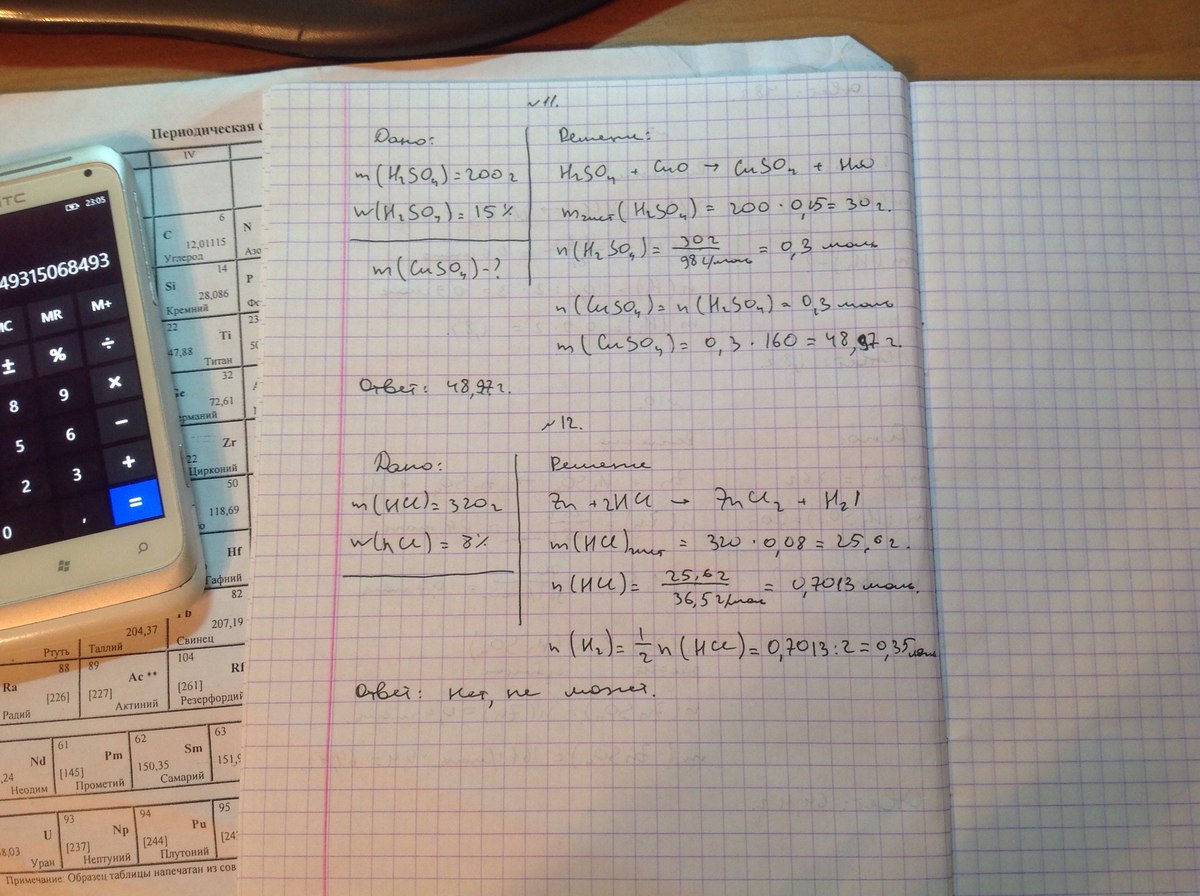 №11.
Дано:
m(H₂SO₄)=200г
w(H₂SO₄)=15%
m(CuSO₄)-?
Решение:
H₂SO₄ + CuO → CuSO₄ + H₂O
mчист(H₂SO₄) = 200 · 0,15 = 30 г.
n(H₂SO₄) = 30г / 98 г/моль = 0,3 моль
n(CuSO₄) = n(H₂SO₄) = 0,3 моль
m(CuSO₄) = 0,3 · 160 = 48,97 г.
Ответ: 48,97 г.
№12.
Дано:
m(HCl)=320г
w(hCl)=8%
Решение
Zn + 2HCl → ZnCl₂ + H₂↑
m(HCl)чист = 320 · 0,08 = 25,6 г.
n(HCl) = 25,6г / 36,5 г/моль = 0,7013 моль.
n(H₂) = 1/2 n(HCl) = 0,7013 : 2 = 0,35 моль
Ответ: Нет, не может.
Периодическая с
IV
6
C
12,01115
Углерод
N
Азо
14
Si
28,086
Кремний
P
22
Ti
47,88
Титан
23
32
72,61
Zr
Цирконий
50
118,69
Hf
Гафний
82
207,19
Свинец
204,37
Ртуть
Таллий
88
Ra
[226]
Радий
89
Ac **
[227]
Актиний
104
Rf
[261]
Резерфордий
Nd
Неодим
61
Pm
[145]
Прометий
62
Sm
150,35
Самарий
63
151,9
U
Уран
93
Np
[237]
Нептуний
94
Pu
[244]
Плутоний
95
[24
Примечание. Образец таблицы напечатан из сов
HTC
23:05
49315068493
MC MR M+
± % ÷
8 9 ×
5 6 −
2 3 +
0 , =